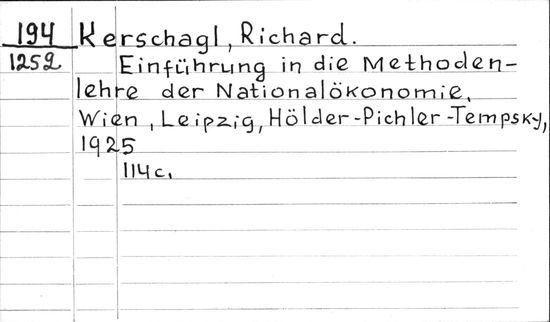 194 Kerschagl, Richard.
1252 Einführung in die Methoden-
lehre der Nationalökonomie.
Wien, Leipzig, Hölder-Pichler-Tempsky,
1925
114c.